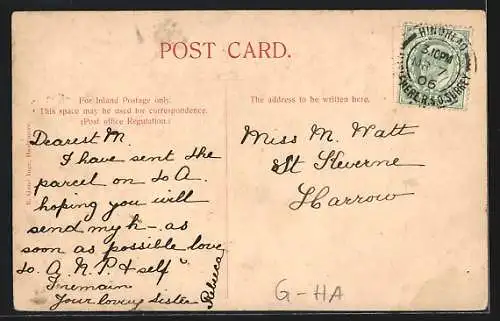 POST CARD.
For Inland Postage only.
This space may be used for correspondence.
(Post office Regulation.)
The address to be written here.
HINDHEAD
3.10PM
7
06
R.S.O. SURREY
Dearest M.
I have sent the
parcel on to A.
hoping you will
send my h— as
soon as possible love
to. A. N. P. & self
I remain
Your loving Sister
Rebecca
Miss M. Watt
St Keverne
Harrow
G-HA